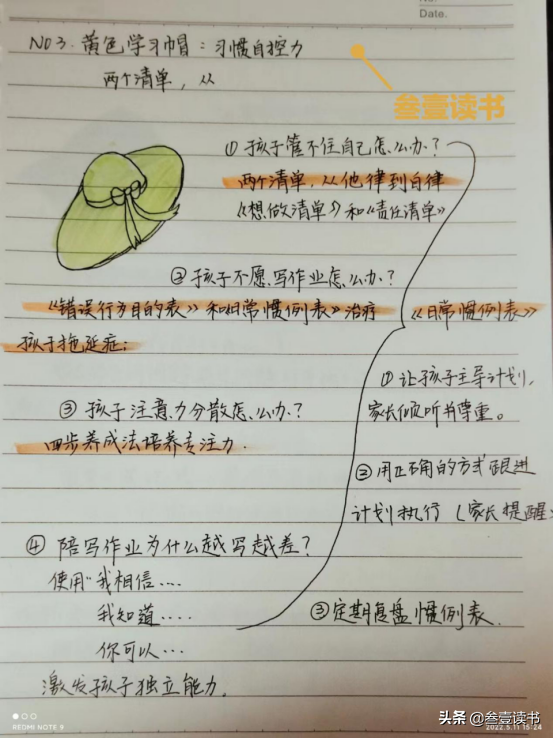 Date.
NO3.黄色学习帽：习惯自控力
两个清单，从
叁壹读书
①孩子管不住自己怎么办？
两个清单，从他律到自律
《想做清单》和《责任清单》
②孩子不愿写作业怎么办？
《错误行为目的表》和《日常惯例表》治疗
孩子拖延症；
《日常惯例表》
①让孩子主导计划，
家长倾听并尊重。
③孩子注意力分散怎么办？
四步养成法培养专注力.
②用正确的方式跟进
计划执行（家长提醒）
④陪写作业为什么越写越差？
使用“我相信....
我知道....
你可以...
③定期复盘惯例表.
激发孩子独立能力.
REDMI NOTE 9
2022.5.11 15:24
头条@叁壹读书